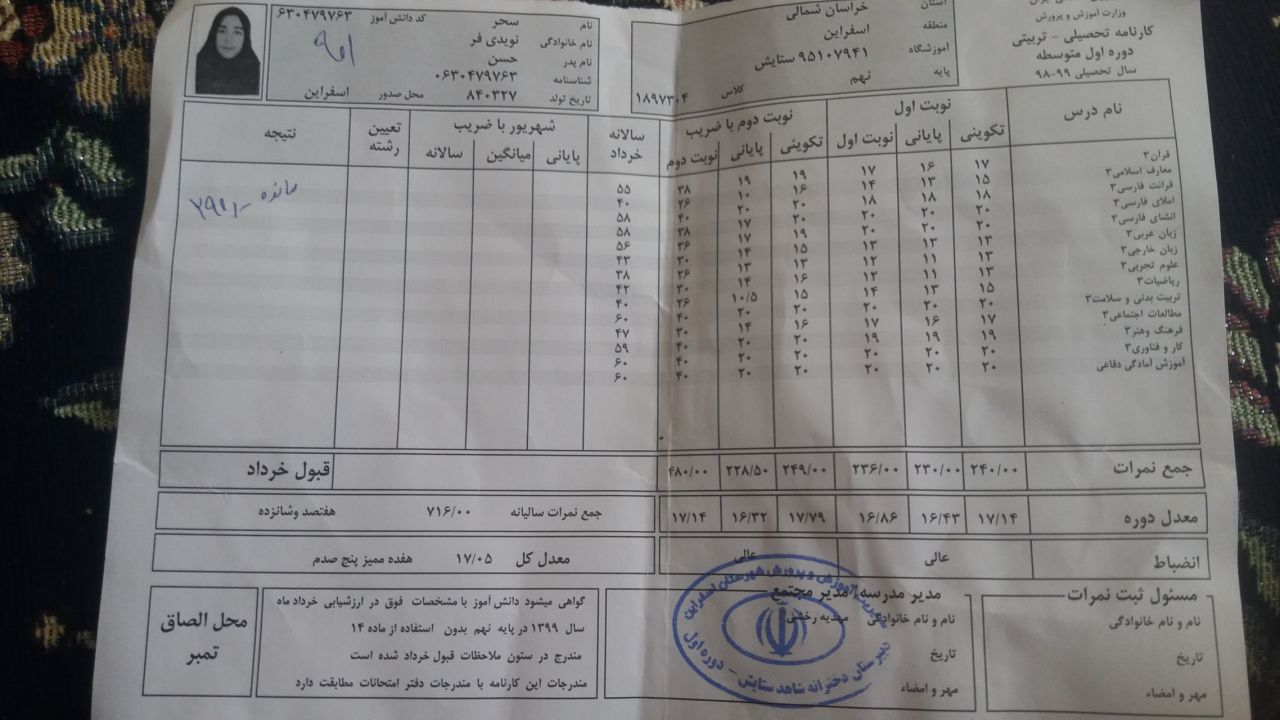 وزارت آموزش و پرورش
کارنامه تحصیلی - تربیتی
دوره اول متوسطه
سال تحصیلی ۹۹-۹۸
استان خراسان شمالی
منطقه اسفراین
آموزشگاه ۹۵۱۰۷۹۴۱ ستایش
پایه نهم کلاس ۱۸۹۷۳۰۴
نام سحر کد دانش آموز ۶۳۰۴۷۹۷۶۳
نام خانوادگی نویدی فر
نام پدر حسن
شناسنامه ۰۶۳۰۴۷۹۷۶۳
تاریخ تولد ۸۴۰۳۲۷ محل صدور اسفراین
نام درس نوبت اول نوبت دوم با ضریب سالانه خرداد شهریور با ضریب تعیین رشته نتیجه
تکوینی پایانی نوبت اول تکوینی پایانی نوبت دوم پایانی میانگین سالانه
قران۳ ۱۷ ۱۶ ۱۷ ۱۹ ۱۹ ۳۸ ۵۵
معارف اسلامی۳ ۱۵ ۱۳ ۱۴ ۱۶ ۱۰ ۲۶ ۴۰
قرائت فارسی۳ ۱۸ ۱۸ ۱۸ ۲۰ ۲۰ ۴۰ ۵۸
املای فارسی۳ ۲۰ ۲۰ ۲۰ ۲۰ ۱۷ ۳۸ ۵۸
انشای فارسی۳ ۲۰ ۲۰ ۲۰ ۱۹ ۱۷ ۳۶ ۵۶
زبان عربی۳ ۱۳ ۱۳ ۱۳ ۱۵ ۱۴ ۳۰ ۴۳
زبان خارجی۳ ۱۳ ۱۱ ۱۲ ۱۳ ۱۳ ۲۶ ۳۸
علوم تجربی۳ ۱۳ ۱۱ ۱۲ ۱۶ ۱۴ ۳۰ ۴۲
ریاضیات۳ ۱۵ ۱۳ ۱۴ ۱۵ ۱۰/۵ ۲۶ ۴۰
تربیت بدنی و سلامت۳ ۲۰ ۲۰ ۲۰ ۲۰ ۲۰ ۴۰ ۶۰
مطالعات اجتماعی۳ ۱۷ ۱۶ ۱۷ ۱۶ ۱۴ ۳۰ ۴۷
فرهنگ وهنر۳ ۱۹ ۱۹ ۱۹ ۲۰ ۲۰ ۴۰ ۵۹
کار و فناوری۳ ۲۰ ۲۰ ۲۰ ۲۰ ۲۰ ۴۰ ۶۰
آموزش آمادگی دفاعی ۲۰ ۲۰ ۲۰ ۲۰ ۲۰ ۴۰ ۶۰
جمع نمرات ۲۴۰/۰۰ ۲۳۰/۰۰ ۲۳۶/۰۰ ۲۴۹/۰۰ ۲۲۸/۵۰ ۴۸۰/۰۰ قبول خرداد
معدل دوره ۱۷/۱۴ ۱۶/۴۳ ۱۶/۸۶ ۱۷/۷۹ ۱۶/۳۲ ۱۷/۱۴ جمع نمرات سالیانه ۷۱۶/۰۰ هفتصد وشانزده
انضباط عالی عالی معدل کل ۱۷/۰۵ هفده ممیز پنج صدم
مسئول ثبت نمرات
نام و نام خانوادگی
تاریخ
مهر و امضاء
مدیر مدرسه / مدیر مجتمع
نام و نام خانوادگی
تاریخ
مهر و امضاء
مدیریت آموزش و پرورش شهرستان اسفراین
دبیرستان دخترانه شاهد ستایش - دوره اول
گواهی میشود دانش آموز با مشخصات فوق در ارزشیابی خرداد ماه
سال ۱۳۹۹ در پایه نهم بدون استفاده از ماده ۱۴
مندرج در ستون ملاحظات قبول خرداد شده است
مندرجات این کارنامه با مندرجات دفتر امتحانات مطابقت دارد
محل الصاق
تمبر